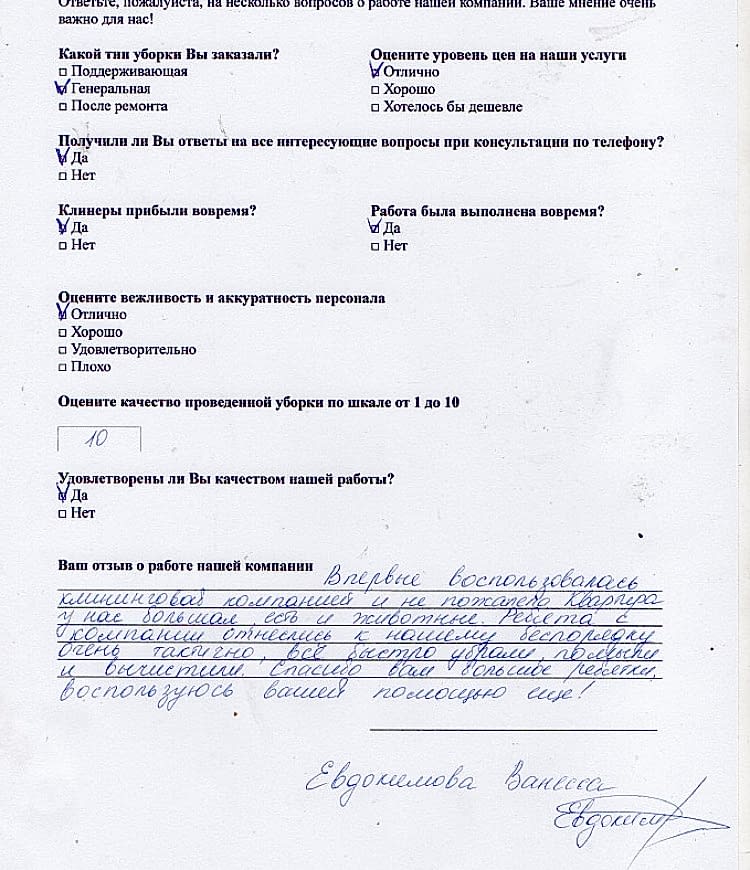 Ответьте, пожалуйста, на несколько вопросов о работе нашей компании. Ваше мнение очень
важно для нас!
Какой тип уборки Вы заказали?
Поддерживающая
Генеральная
После ремонта
Оцените уровень цен на наши услуги
Отлично
Хорошо
Хотелось бы дешевле
Получили ли Вы ответы на все интересующие вопросы при консультации по телефону?
Да
Нет
Клинеры прибыли вовремя?
Да
Нет
Работа была выполнена вовремя?
Да
Нет
Оцените вежливость и аккуратность персонала
Отлично
Хорошо
Удовлетворительно
Плохо
Оцените качество проведенной уборки по шкале от 1 до 10
10
Удовлетворены ли Вы качеством нашей работы?
Да
Нет
Ваш отзыв о работе нашей компании Впервые воспользовалась
клининговой компанией и не пожалела. Квартира
у нас большая, есть и животные. Ребята с
компании отнеслись к нашему беспорядку
очень тактично, всё быстро убрали, помыли
и вычистили. Спасибо вам большое ребятки,
воспользуюсь вашей помощью еще!
Евдокимова Ванесса
Евдоким